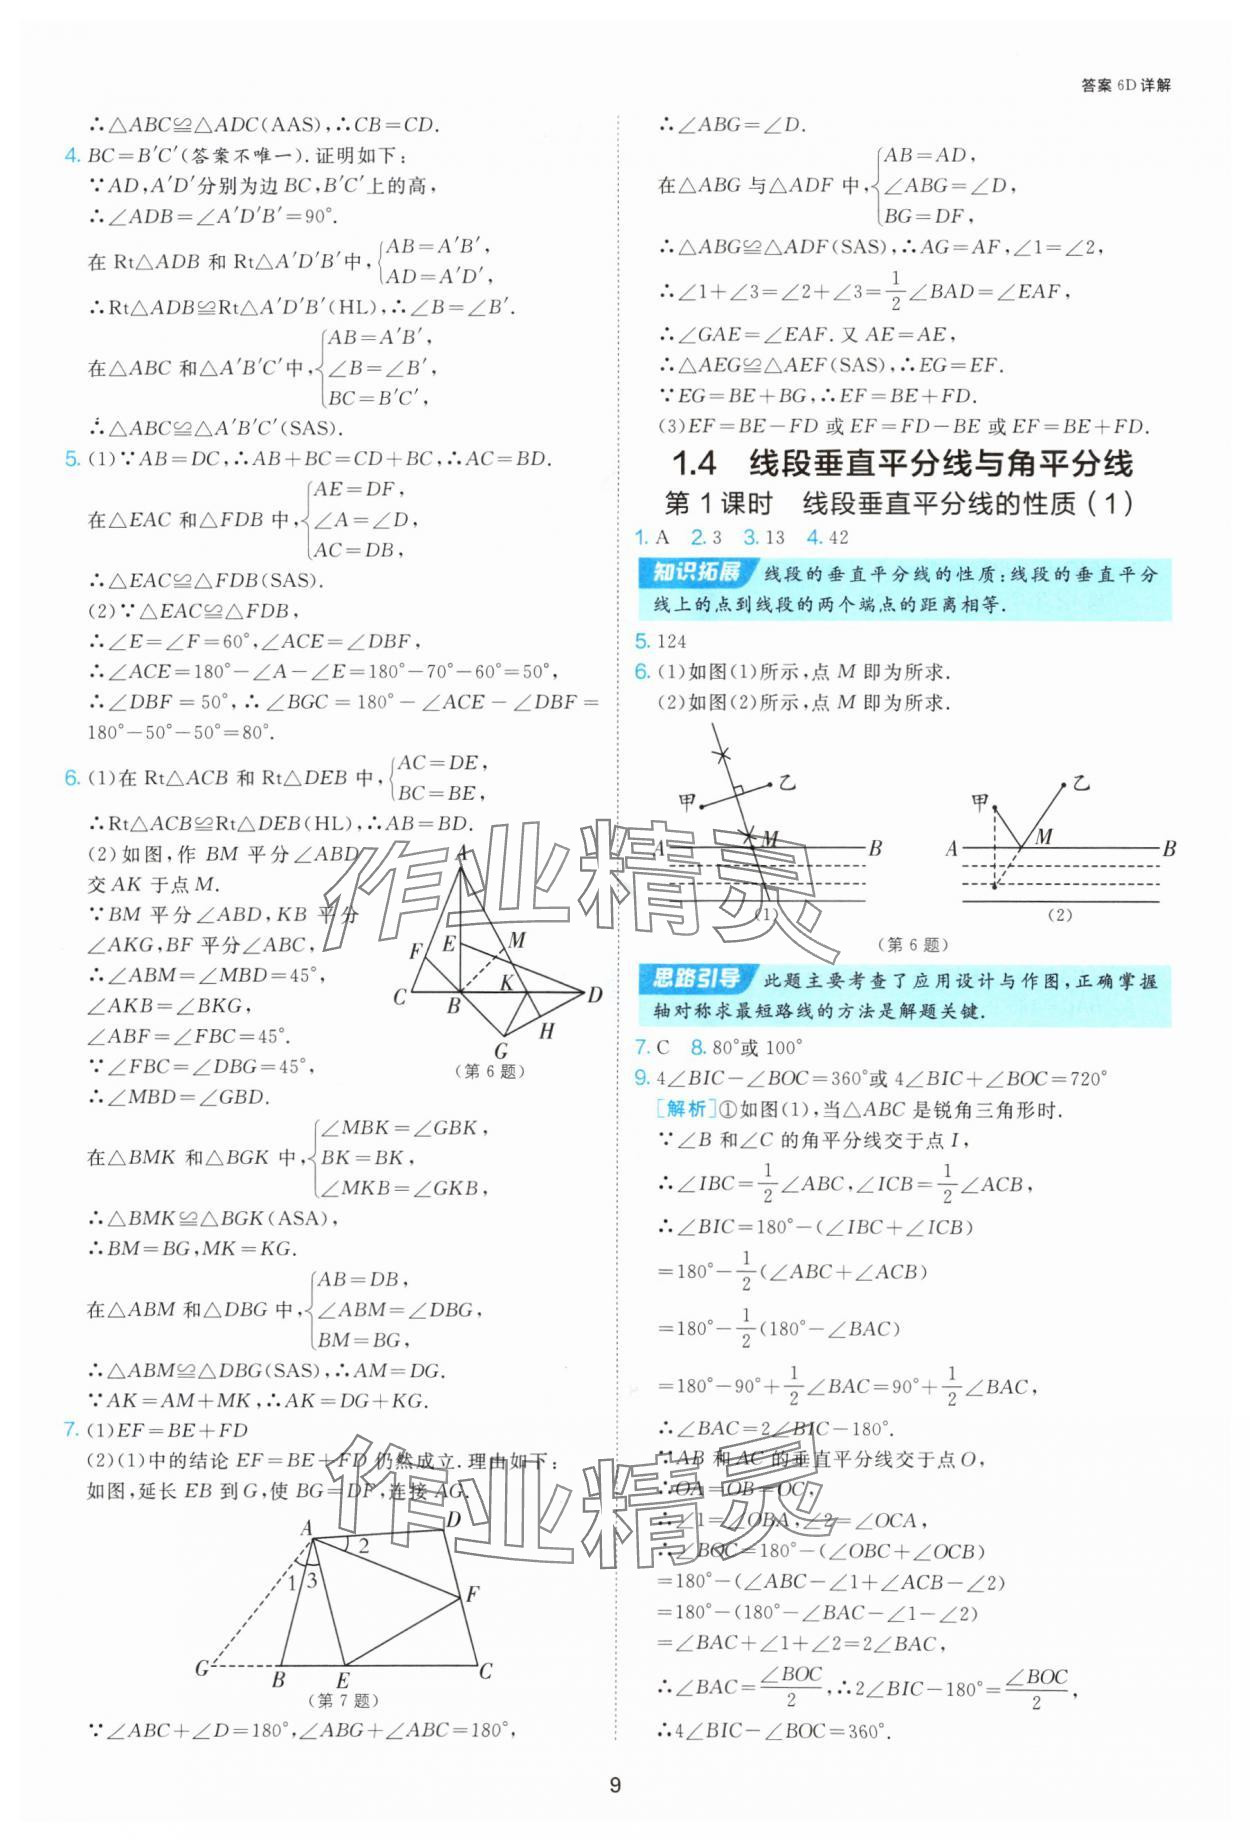 答案 6D 详解
∴△ABC≌△ADC(AAS),∴CB=CD.
4. BC=B′C′(答案不唯一).证明如下:
∵AD,A′D′分别为边BC,B′C′上的高,
∴∠ADB=∠A′D′B′=90°.
在Rt△ADB 和 Rt△A′D′B′中,{AB=A′B′,
AD=A′D′,
∴Rt△ADB≌Rt△A′D′B′(HL),∴∠B=∠B′.
在△ABC 和△A′B′C′中,{AB=A′B′,
∠B=∠B′,
BC=B′C′,
∴△ABC≌△A′B′C′(SAS).
5. (1)∵AB=DC,∴AB+BC=CD+BC,∴AC=BD.
在△EAC 和△FDB 中,{AE=DF,
∠A=∠D,
AC=DB,
∴△EAC≌△FDB(SAS).
(2)∵△EAC≌△FDB,
∴∠E=∠F=60°,∠ACE=∠DBF,
∴∠ACE=180°-∠A-∠E=180°-70°-60°=50°,
∴∠DBF=50°,∴∠BGC=180°-∠ACE-∠DBF=
180°-50°-50°=80°.
6. (1)在 Rt△ACB 和 Rt△DEB 中,{AC=DE,
BC=BE,
∴Rt△ACB≌Rt△DEB(HL),∴AB=BD.
(2)如图,作 BM 平分∠ABD
交 AK 于点M.
∵BM 平分∠ABD,KB 平分
∠AKG,BF 平分∠ABC,
∴∠ABM=∠MBD=45°,
∠AKB=∠BKG,
∠ABF=∠FBC=45°.
∵∠FBC=∠DBG=45°,
∴∠MBD=∠GBD.
A
F
E
M
C
B
K
D
G
H
(第 6 题)
在△BMK 和△BGK 中,{∠MBK=∠GBK,
BK=BK,
∠MKB=∠GKB,
∴△BMK≌△BGK(ASA),
∴BM=BG,MK=KG.
在△ABM 和△DBG 中,{AB=DB,
∠ABM=∠DBG,
BM=BG,
∴△ABM≌△DBG(SAS),∴AM=DG.
∵AK=AM+MK,∴AK=DG+KG.
7. (1)EF=BE+FD
(2)(1)中的结论 EF=BE+FD 仍然成立.理由如下:
如图,延长 EB 到G,使 BG=DF,连接 AG.
A
D
2
1
3
F
G
B
E
C
(第 7 题)
∵∠ABC+∠D=180°,∠ABG+∠ABC=180°,
∴∠ABG=∠D.
在△ABG 与△ADF 中,{AB=AD,
∠ABG=∠D,
BG=DF,
∴△ABG≌△ADF(SAS),∴AG=AF,∠1=∠2,
∴∠1+∠3=∠2+∠3=1/2∠BAD=∠EAF,
∴∠GAE=∠EAF.又 AE=AE,
∴△AEG≌△AEF(SAS),∴EG=EF.
∵EG=BE+BG,∴EF=BE+FD.
(3)EF=BE-FD 或EF=FD-BE 或EF=BE+FD.
1.4 线段垂直平分线与角平分线
第 1 课时 线段垂直平分线的性质(1)
1. A 2. 3 3. 13 4. 42
知识拓展 线段的垂直平分线的性质:线段的垂直平分
线上的点到线段的两个端点的距离相等.
5. 124
6. (1)如图(1)所示,点 M 即为所求.
(2)如图(2)所示,点 M 即为所求.
甲
乙
A
M
B
(1)
甲
乙
A
M
B
(2)
(第 6 题)
思路引导 此题主要考查了应用设计与作图,正确掌握
轴对称求最短路线的方法是解题关键.
7. C 8. 80°或 100°
9. 4∠BIC-∠BOC=360°或 4∠BIC+∠BOC=720°
[解析]①如图(1),当△ABC 是锐角三角形时.
∵∠B 和∠C 的角平分线交于点 I,
∴∠IBC=1/2∠ABC,∠ICB=1/2∠ACB,
∴∠BIC=180°-(∠IBC+∠ICB)
=180°-1/2(∠ABC+∠ACB)
=180°-1/2(180°-∠BAC)
=180°-90°+1/2∠BAC=90°+1/2∠BAC,
∴∠BAC=2∠BIC-180°.
∵AB 和 AC 的垂直平分线交于点O,
∴OA=OB=OC,
∴∠1=∠OBA,∠2=∠OCA,
∴∠BOC=180°-(∠OBC+∠OCB)
=180°-(∠ABC-∠1+∠ACB-∠2)
=180°-(180°-∠BAC-∠1-∠2)
=∠BAC+∠1+∠2=2∠BAC,
∴∠BAC=∠BOC/2,∴2∠BIC-180°=∠BOC/2,
∴4∠BIC-∠BOC=360°.
作业精灵
作业精灵
9